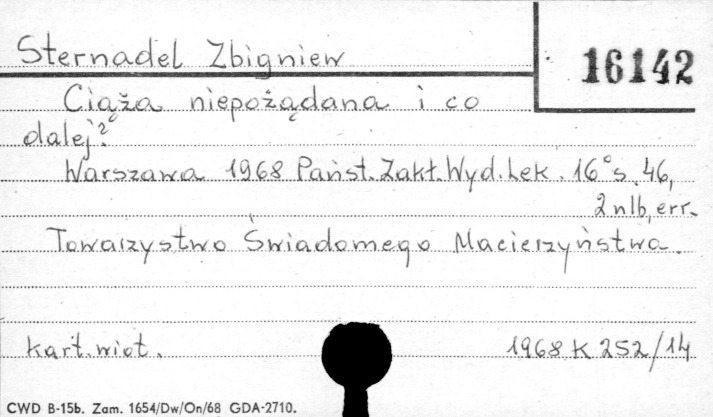 Sternadel Zbigniew
16142
Ciąża niepożądana i co
dalej?
Warszawa 1968 Państ. Zakł. Wyd. Lek. 16° s. 46,
2 nlb, err.
Towarzystwo Świadomego Macierzyństwa.
kart. wiot. 1968 K 252/14
CWD B-15b. Zam. 1654/Dw/On/68 GDA-2710.